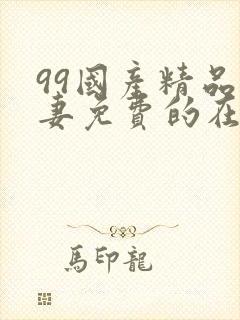 99國產精品
妻免費的在
馬印龍